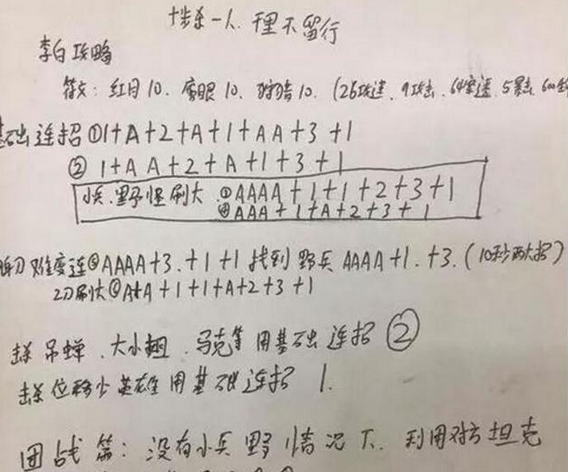 十步杀一人、千里不留行
李白攻略
符文：红月10、鹰眼10、狩猎10、(26攻速、9攻击、64穿透、5暴击、600
基础连招①1+A+2+A+1+AA+3+1
②1+AA+2+A+1+3+1
小兵、野怪刷大①AAAA+1+1+2+3+1
④AAA+1+A+2+3+1
难度连⑤AAAA+3.+1+1找到野兵AAAA+1.+3.(10秒两大招)
2刀刷大⑥A+A+1+1+A+2+3+1
击杀吊蝉、大小翘、马克等用基础连招②
击杀位移少英雄用基础连招1.
团战篇：没有小兵野情况下、利用对方坦克